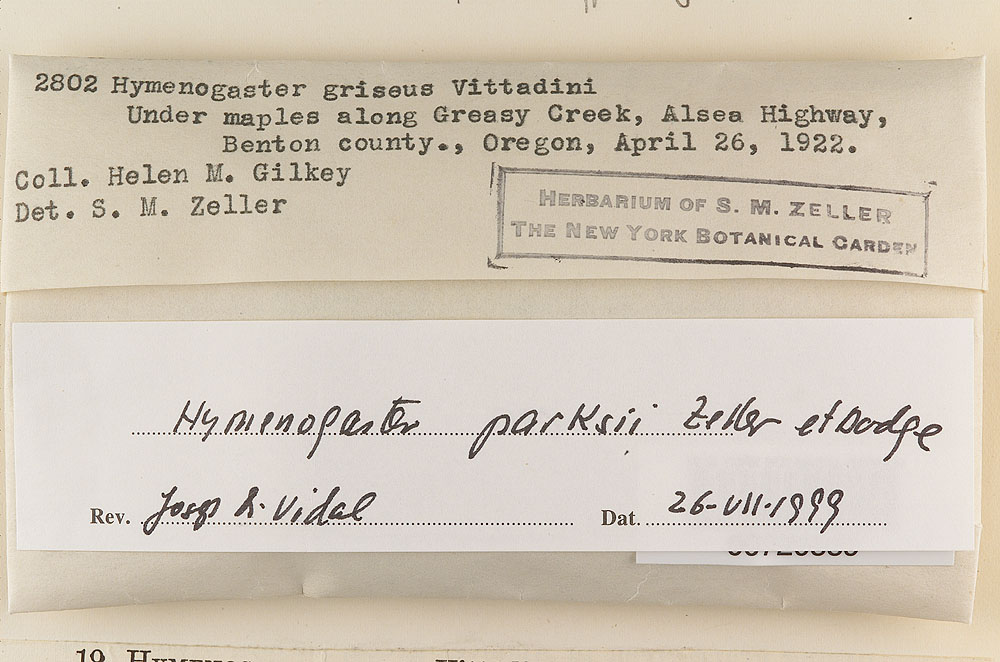 2802 Hymenogaster griseus Vittadini
Under maples along Greasy Creek, Alsea Highway,
Benton county., Oregon, April 26, 1922.
Coll. Helen M. Gilkey
Det. S. M. Zeller
HERBARIUM OF S. M. ZELLER
THE NEW YORK BOTANICAL GARDEN
Hymenogaster parksii Zeller et Dodge
Rev. Josep M. Vidal
Dat. 26-VII-1999
19 HYMENOG